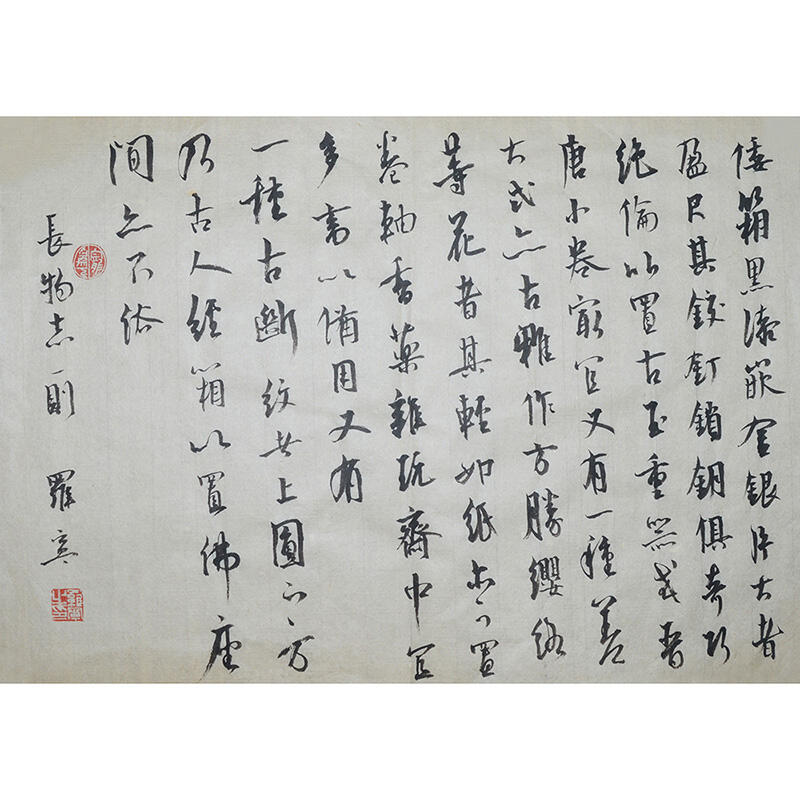 倭箱黑漆嵌金銀片大者
盈尺其鉸釘鎖鑰俱奇巧
絕倫以置古玉重器或晉
唐小卷最宜又有一種差
大式亦古雅作方勝纓絡
等花者其輕如紙亦可置
卷軸香藥雜玩齋中宜
多畜以備用又有
一種古斷紋者上圓下方
乃古人經箱以置佛座
間亦不俗
長物志一則 羅